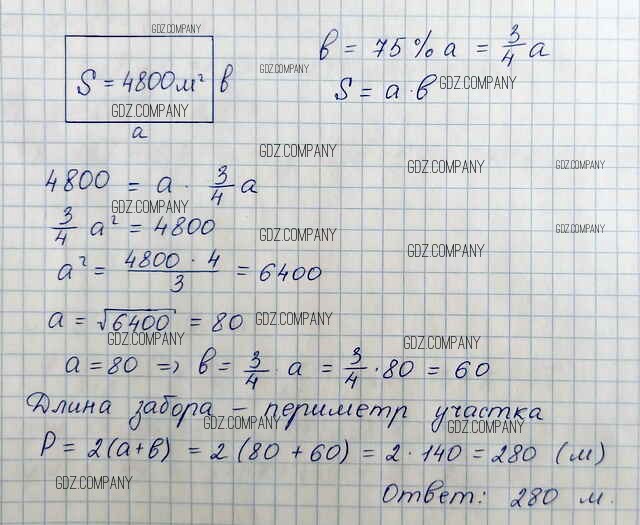 GDZ.COMPANY
S = 4800 м² в
GDZ.COMPANY
а
в = 75% а = 3/4 а
GDZ.COMPANY
S = а · в GDZ.COMPANY
GDZ.COMPANY
GDZ.COMPANY
GDZ.COMPANY
4800 = а · 3/4 а
GDZ.COMPANY
3/4 а² = 4800
GDZ.COMPANY
GDZ.COMPANY
GDZ.COMPANY
а² = 4800 · 4 / 3 = 6400
а = √6400 = 80 GDZ.COMPANY
GDZ.COMPANY
GDZ.COMPANY
а = 80 => в = 3/4 · а = 3/4 · 80 = 60
Длина забора – периметр участка
GDZ.COMPANY
GDZ.COMPANY
Р = 2(а+в) = 2 (80 + 60) = 2 · 140 = 280 (м)
GDZ.COMPANY
Ответ: 280 м.